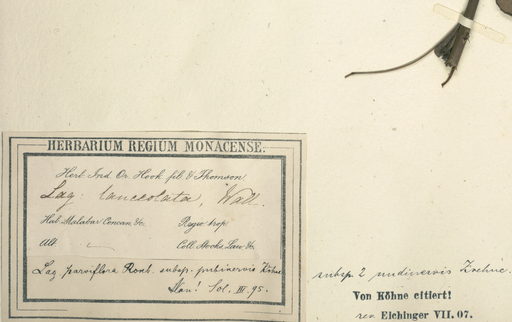 HERBARIUM REGIUM MONACENSE.
Herb. Ind. Or. Hook. fil. & Thomson
Lag. lanceolata, Wall.
Hab. Malabar Concan &c. Regio trop.
Alt. Coll. Stocks Law &c.
Lag. parviflora Roxb. subsp. Köhne
! III. 95.
subsp. 2 nudinervis Koehne.
Von Köhne citiert!
rev. Eichinger VII. 07.